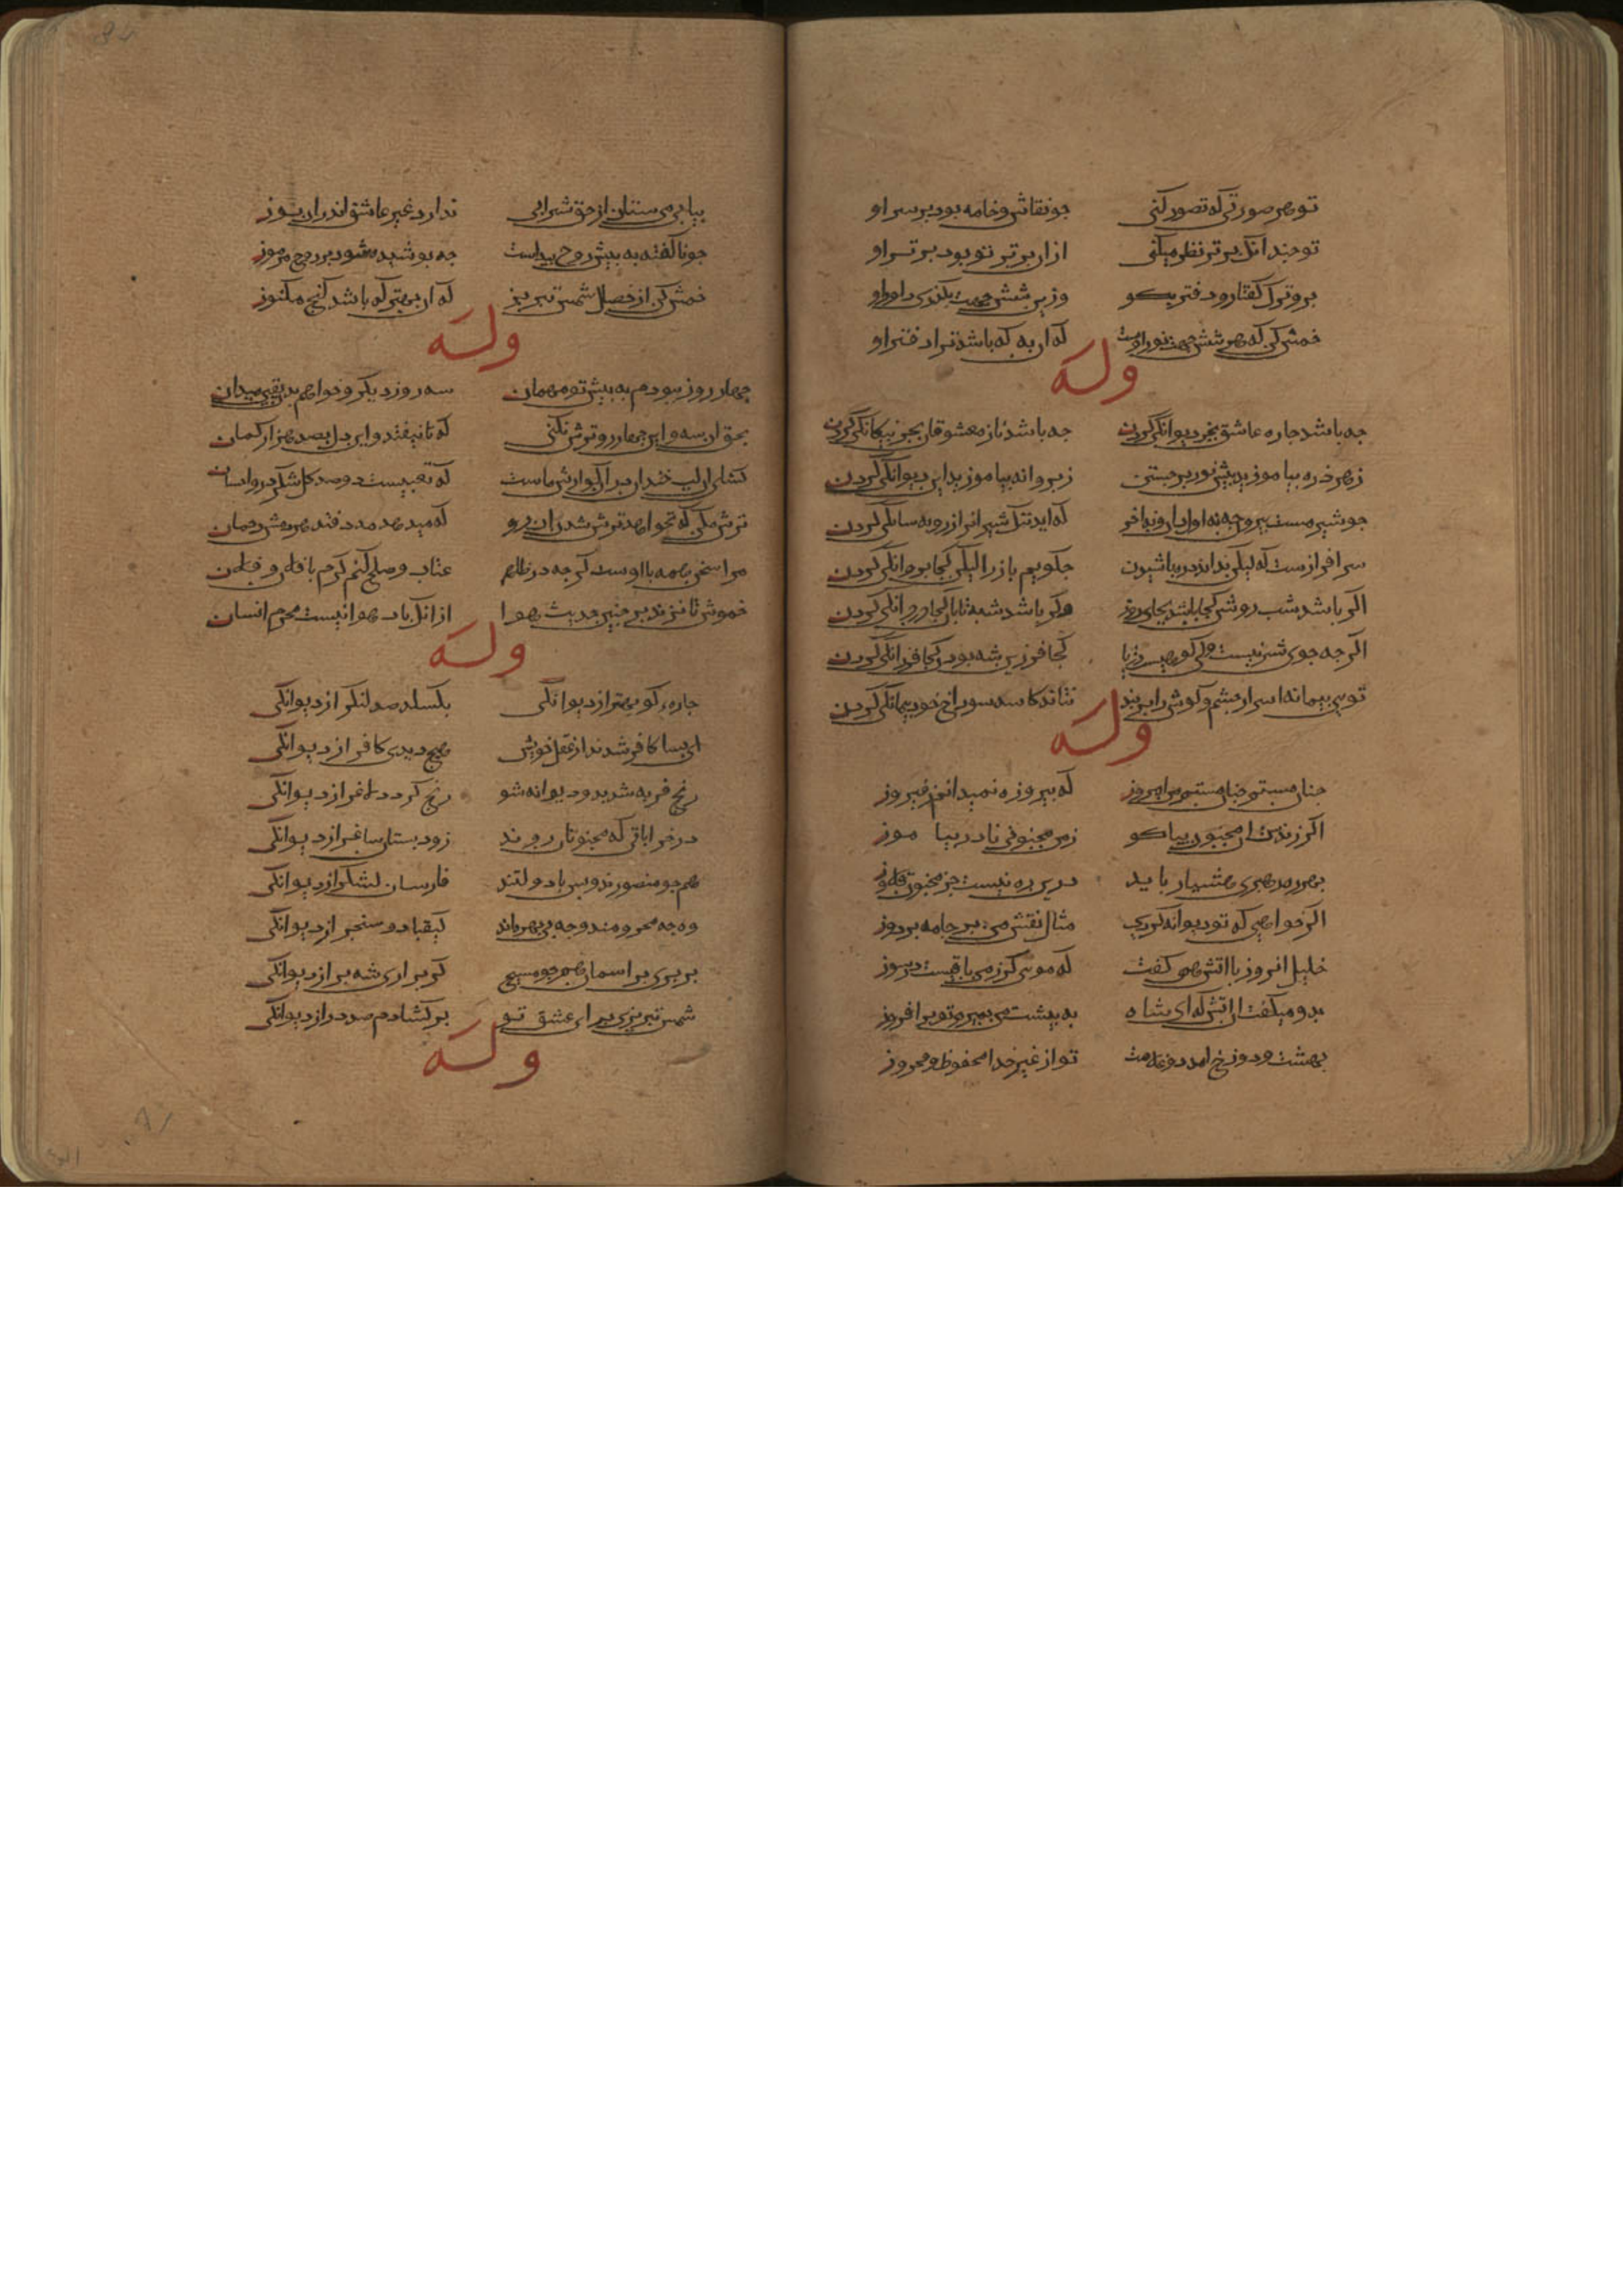 تو هر صورتی که تصور کنی جو نقاش و خامه بود بر سر او
تو جندانک برتر نظر میکنی ازان برتر تو بود برتر او
برو ترک کفتار و دفتر بکو
خمش کن که هر شش جهت نور اوست که ان به که باشد ترا دفتر او
وله
جه باشد جاره عاشق بجز دیوانکی کردن جه باشد ناز معشوقان بجز بیکانکی کردن
ز هر ذره بیاموزید بیش نور برجستن ز بروانه بیاموزید این دیوانکی کردن
جو شیر مست بیرون جه نه اول دان و نه اخر که اید ننک شیرانرا ز روبه سانکی کردن
سرافرازست که لیکن نداند ذره باشیدن جکویم باز را لیکن کجا بروانکی کردن
اکر باشد شب روشن کجا باشد بجای روز وکر باشد شبه تابان کجا دردانکی کردن
اکر جه جوی شیرین است کجا فرزین شه بودن کجا فرزانکی کردن
تو بی بیمانه اسرار جشم و کوش را بربند نتاند کاسه سوراخ خود بیمانکی کردن
وله
جنان مستم جنان مستم من امروز که بیروزه نمیدانم ز فیروز
اکر زندست ان مجنون بیا کو ز من مجنونی نادر بیاموز
بهر ره رهبری هشیار باید درین ره نیست جز مجنون قلاوز
اکر خواهی که تو دیوانه کردی مثال نقش من بر جامه بردوز
خلیل انروز با اتش همی کفت که موی کر ز من باقیست درسوز
بدو میکفت ان اتش که ای شاه به بیشت من بمیرم تو برافروز
بهشت و دوزخ امد دو غلامت تو از غیر خدا محفوظ و محروز
بیابی می ستان از حق شرابی ندارد غیر عاشق اندران بوز
جو ناکفته به بیش روح بیداست جه بوشیده شود بر روح مرموز
خمش کن از خصال شمس تبریز که ان بهتر که باشد کنج مکنوز
وله
جهار روز ببودم به بیش تو مهمان سه روز دیکر خواهم بدن یقین میدان
بحق این سه و این جهار رو ترش نکنی که تا نیفتد این دل بصد هزار کمان
ترش مکن که نخواهد ترش شدن ان رو که میدهد مدد قند هر دمش رحمان
عتاب و صلح کنم کرم با فلان و فلان
خموش تا نزند بر جنین حدیث هوا ازانک باد هوا نیست محرم انسان
وله
جاره کو بهتر از دیوانکی بکسلد صد لنکر از دیوانکی
ای بسا کافر شدند از عقل خویش هیج دیدی کافر از دیوانکی
رنج فربه شد برو دیوانه شو رنج کردد لاغر از دیوانکی
در خراباتی که مجنونان روند زود بستان ساغر از دیوانکی
هم جو منصورند و بس با دولتند فارسان لشکر از دیوانکی
وه جه محرومند و جه بی بهره اند کیقباد و سنجر از دیوانکی
بربری بر اسمان هم جو مسیح کر براری شه بر از دیوانکی
شمس تبریزی برای عشق تو برکشادم صد در از دیوانکی
وله